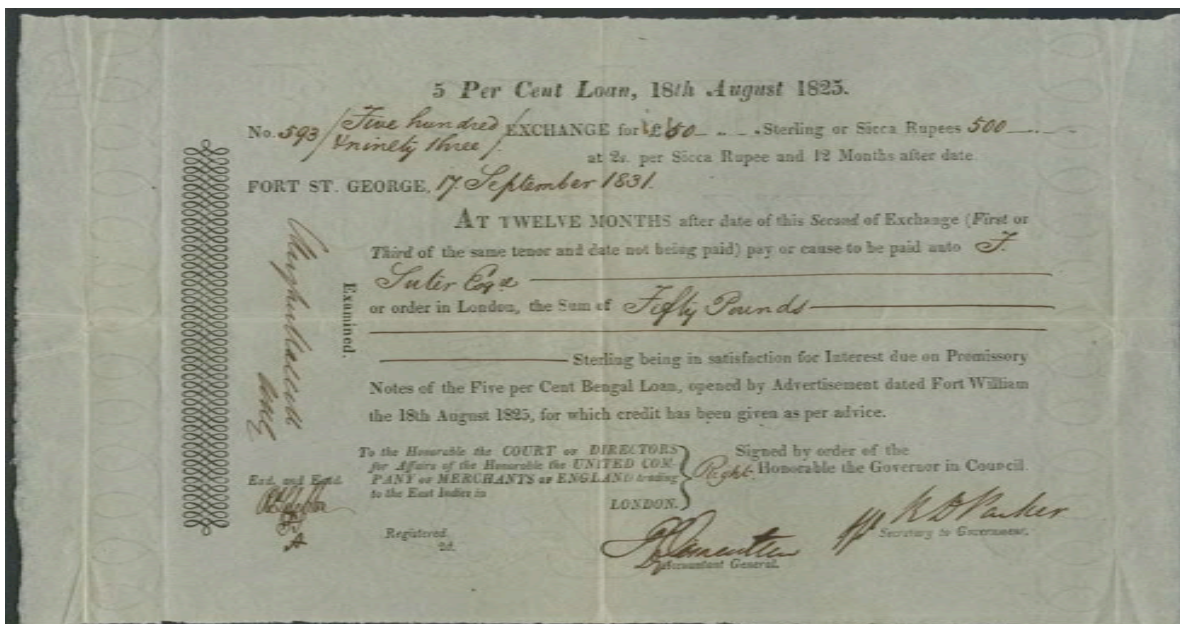 5 Per Cent Loan, 18th August 1825.
No. 593 / Five hundred & ninety three / EXCHANGE for £50 Sterling or Sicca Rupees 500
at 2s. per Sicca Rupee and 12 Months after date.
FORT ST. GEORGE, 17 September 1831.
AT TWELVE MONTHS after date of this Second of Exchange (First or
Third of the same tenor and date not being paid) pay or cause to be paid unto F.
Suter Esqe
or order in London, the Sum of Fifty Pounds
Sterling being in satisfaction for Interest due on Promissory
Notes of the Five per Cent Bengal Loan, opened by Advertisement dated Fort William
the 18th August 1825, for which credit has been given as per advice.
Examined.
To the Honorable the COURT OF DIRECTORS
for Affairs of the Honorable the UNITED COM-
PANY OF MERCHANTS OF ENGLAND trading
to the East Indies in
LONDON.
Signed by order of the
Right Honorable the Governor in Council.
Exd. and Entd.
Registered.
Accountant General.
Parker
Secretary to Government.